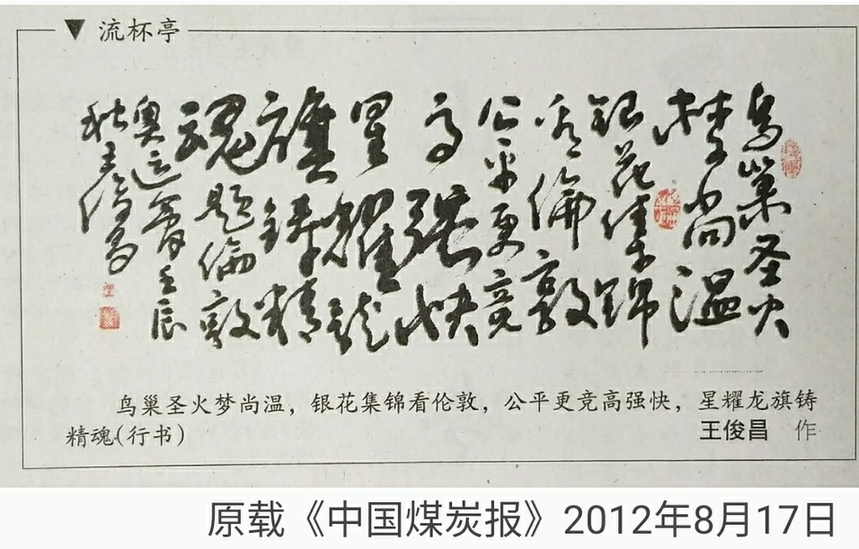 流杯亭
鸟巢圣火
梦尚温
银花集锦
看倫敦
公平更竞
高强快
星耀龙
旗铸精
魂题倫敦
奥运会壬辰
秋王俊昌
鸟巢圣火梦尚温，银花集锦看伦敦，公平更竞高强快，星耀龙旗铸
精魂(行书)
王俊昌 作
原载《中国煤炭报》2012年8月17日